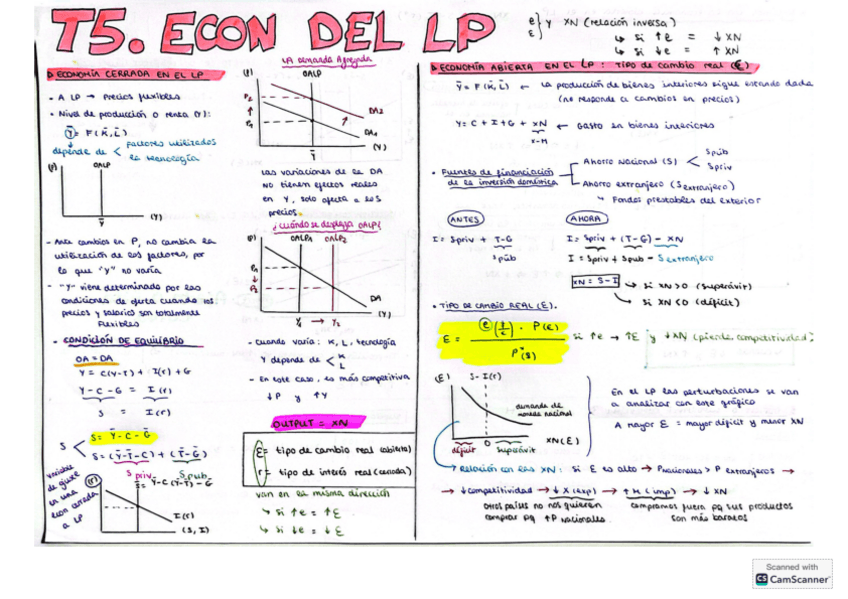 T5. ECON DEL LP
e } y XN (relación inversa)
ε
↳ si ↑e = ↓XN
↳ si ↓e = ↑XN
ECONOMÍA CERRADA EN EL LP
- A LP → precios flexibles
- Nivel de producción o renta (Y):
Ȳ = F(K̄,L̄)
depende de < factores utilizados
la tecnología
(P)
OALP
Ȳ
(Y)
- Ante cambios en P, no cambia la
utilización de los factores, por
lo que "Y" no varía
- "Y" viene determinado por las
condiciones de oferta cuando los
precios y salarios son totalmente
flexibles
- CONDICIÓN DE EQUILIBRIO
OA = DA
Y = C(Y-T) + I(r) + G
Y - C - G = I(r)
S = I(r)
S < S = Ȳ - C - Ḡ
S = (Ȳ-T̄-C) + (T̄-Ḡ)
S priv. S pub.
variable
de ajuste
en una
econ cerrada
a LP
(r)
S = Ȳ-C(Y-T) - G
I(r)
(S, I)
LA Demanda Agregada
(P)
OALP
P2
↑
P1
DA2
DA1
Ȳ
(Y)
Las variaciones de la DA
no tienen efectos reales
en Y, solo afecta a los
precios
¿Cuándo se desplaza OALP?
(P)
OALP1 OALP2
P1
↓
P2
DA
Y1 → Y2
(Y)
- Cuando varía: K, L, tecnología
Y depende de < K
L
- En este caso, es más competitiva
↓P y ↑Y
OUTPUT = XN
ε = tipo de cambio real (abierta)
r = tipo de interés real (cerrada)
van en la misma dirección
↳ si ↑e = ↑ε
↳ si ↓e = ↓ε
ECONOMÍA ABIERTA EN EL LP : TIPO DE CAMBIO REAL (ε)
Ȳ = F(K̄,L̄) ← la producción de bienes interiores sigue estando dada
(no responde a cambios en precios)
Y = C + I + G + XN ← Gasto en bienes interiores
X-M
- Fuentes de financiación
de la inversión doméstica
Ahorro Nacional (S) < Spúb
Spriv
Ahorro extranjero (Sextranjero)
↳ Fondos prestables del exterior
ANTES
I = Spriv + T-G
Spúb
AHORA
I = Spriv + (T-G) - XN
I = Spriv + Spub - Sextranjero
XN = S - I
↳ si XN>0 (superávit)
↳ si XN<0 (déficit)
- TIPO DE CAMBIO REAL (ε).
si ↑e → ↑ε y ↓XN (pierde competitividad)
(ε)
S-I(r)
0
déficit
superávit
XN(ε)
En el LP las perturbaciones se van
a analizar con este gráfico
A mayor ε = mayor déficit y menor XN
→ Relación con las XN: si ε es alto → Pnacionales > P extranjeros →
→ ↓competitividad → ↓X(exp) → ↑M (imp) → ↓XN
otros países no nos quieren
comprar pq ↑P nacionales.
compramos fuera pq sus productos
son más baratos
Scanned with
CS CamScanner